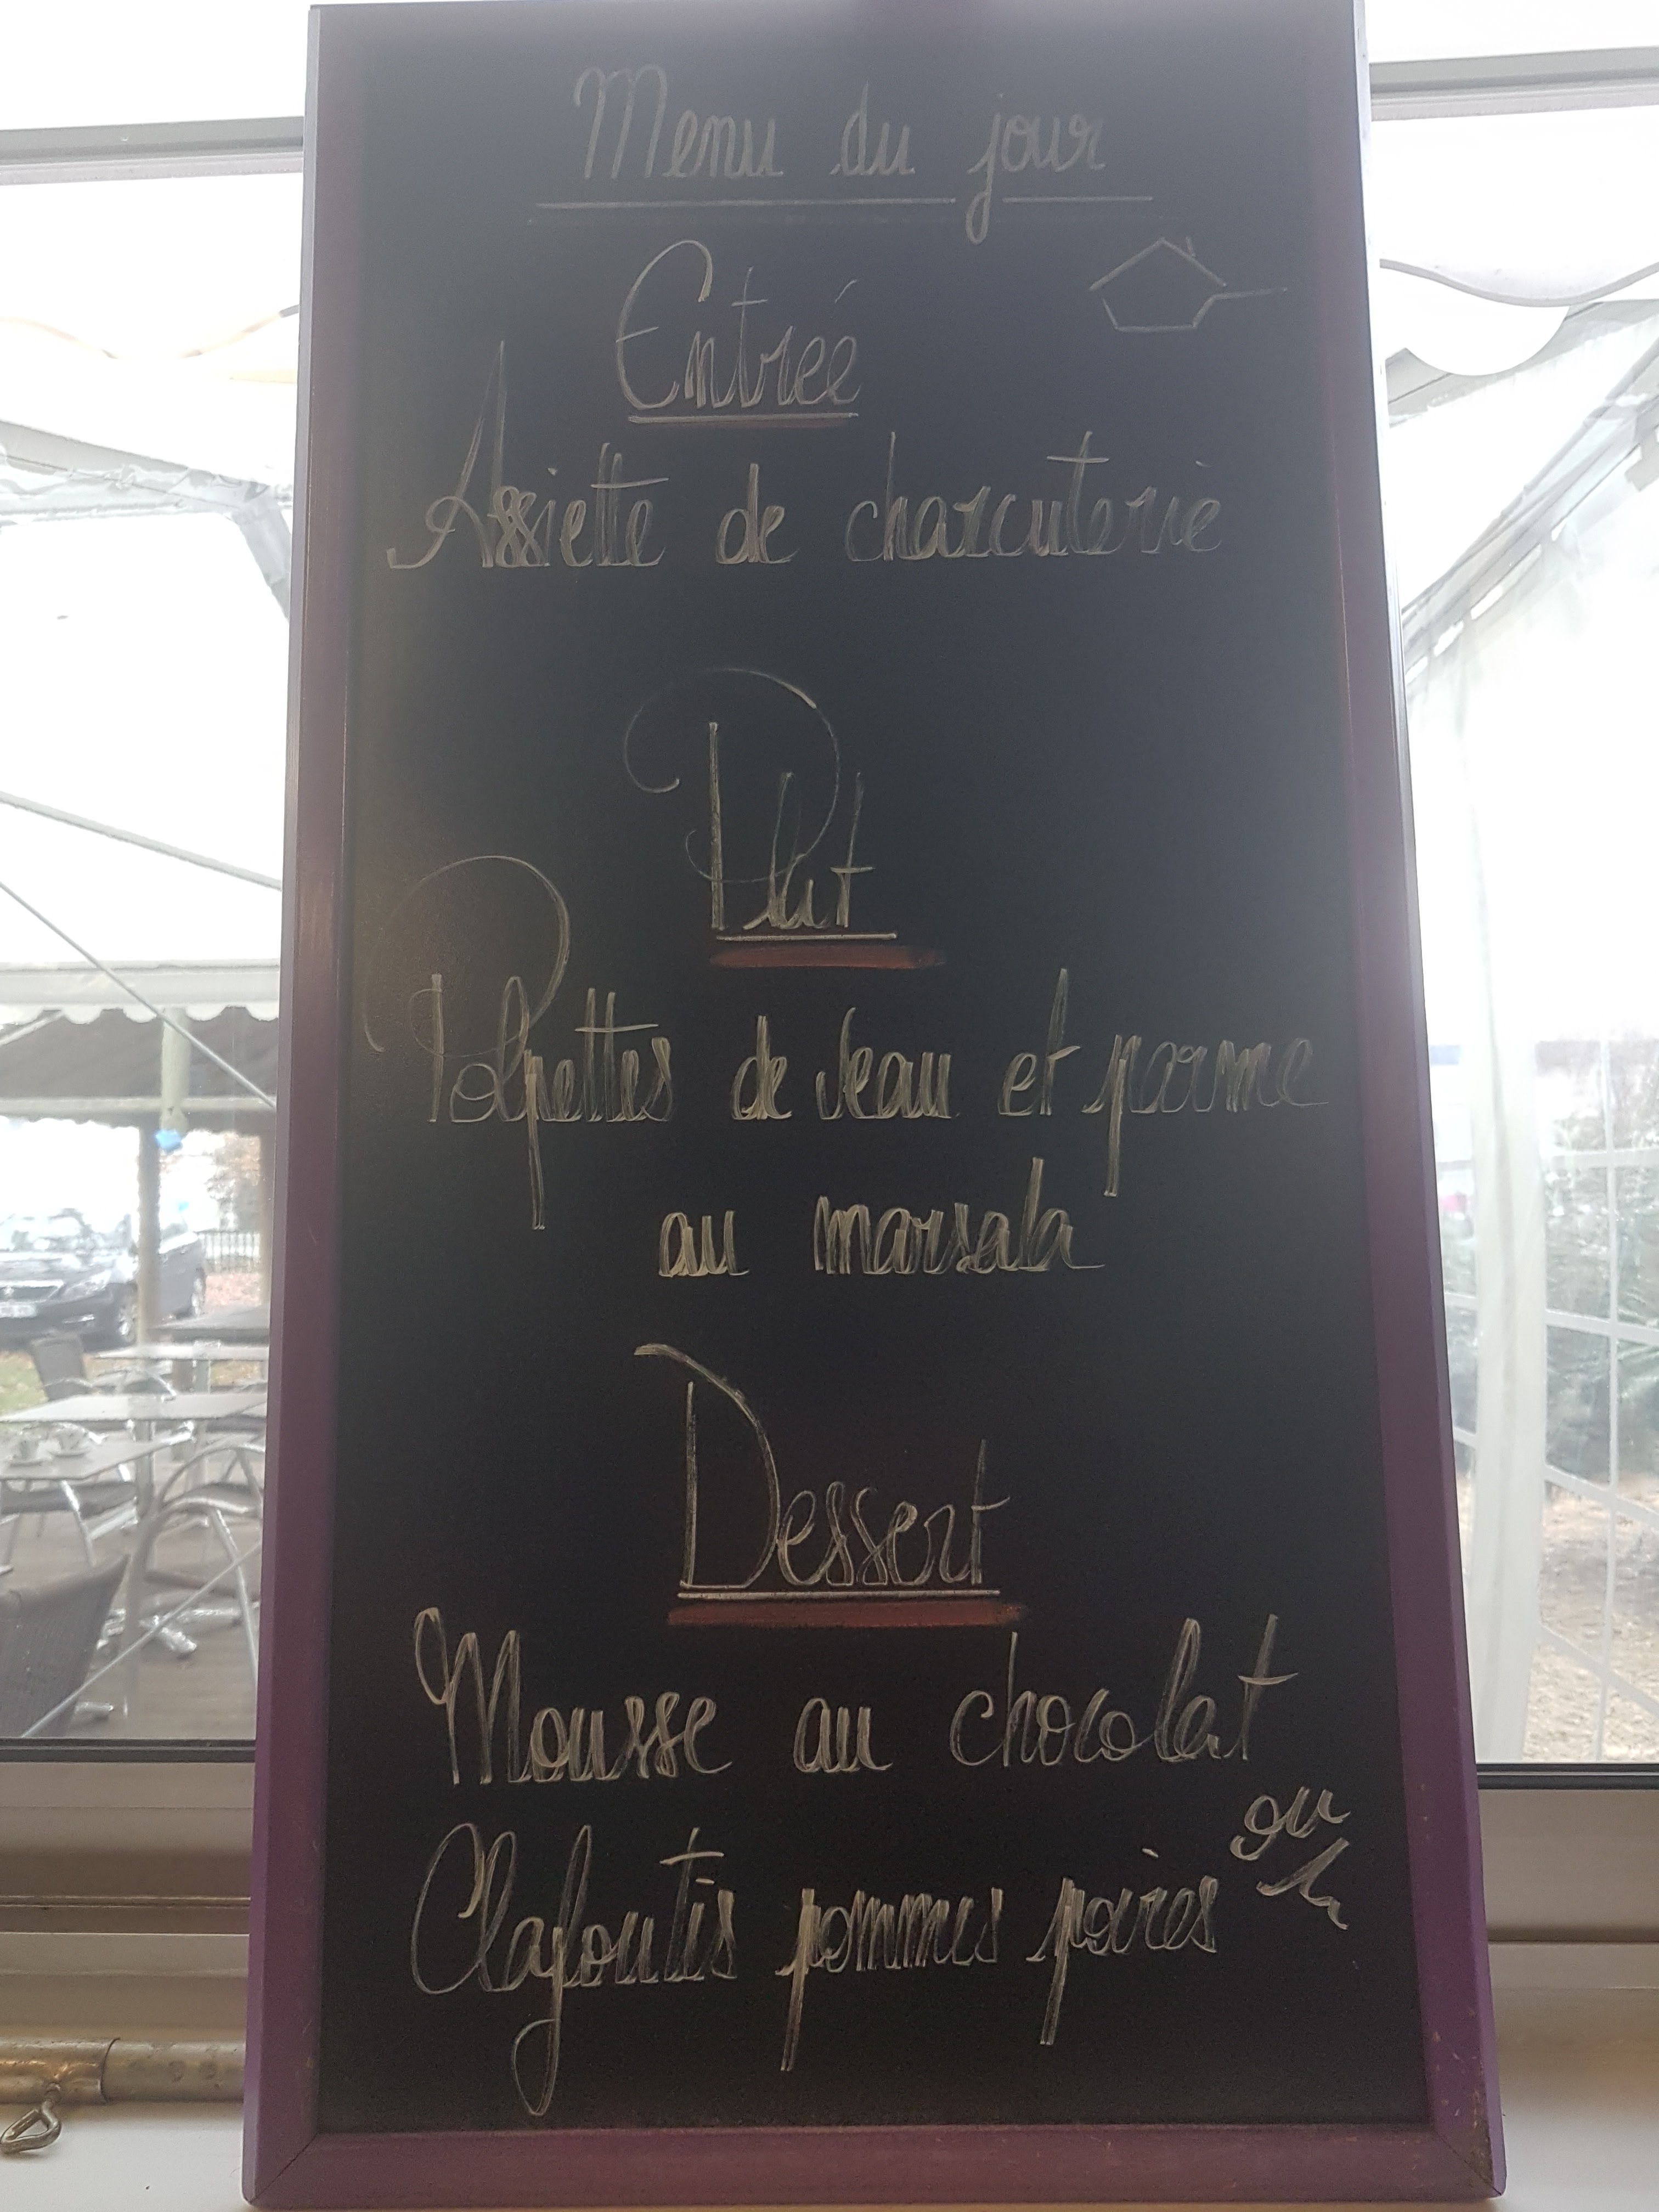 Menu du jour
Entrée
Assiette de charcuterie
Plat
Polpettes de veau et parme
au marsala
Dessert
Mousse au chocolat
ou
Clafoutis pommes poires